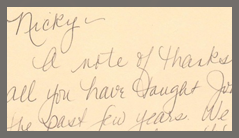 Nicky -
A note of thanks
all you have taught Jon
the past few years. We